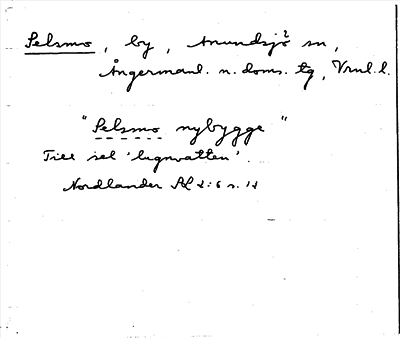 Selsmo, by, Anundsjö sn,
Ångermanl. n. doms. tg, Vrnl. l.
"Selsmo nybygge"
Till sel 'lugnvatten'.
Nordlander SL 2:6 s. 12